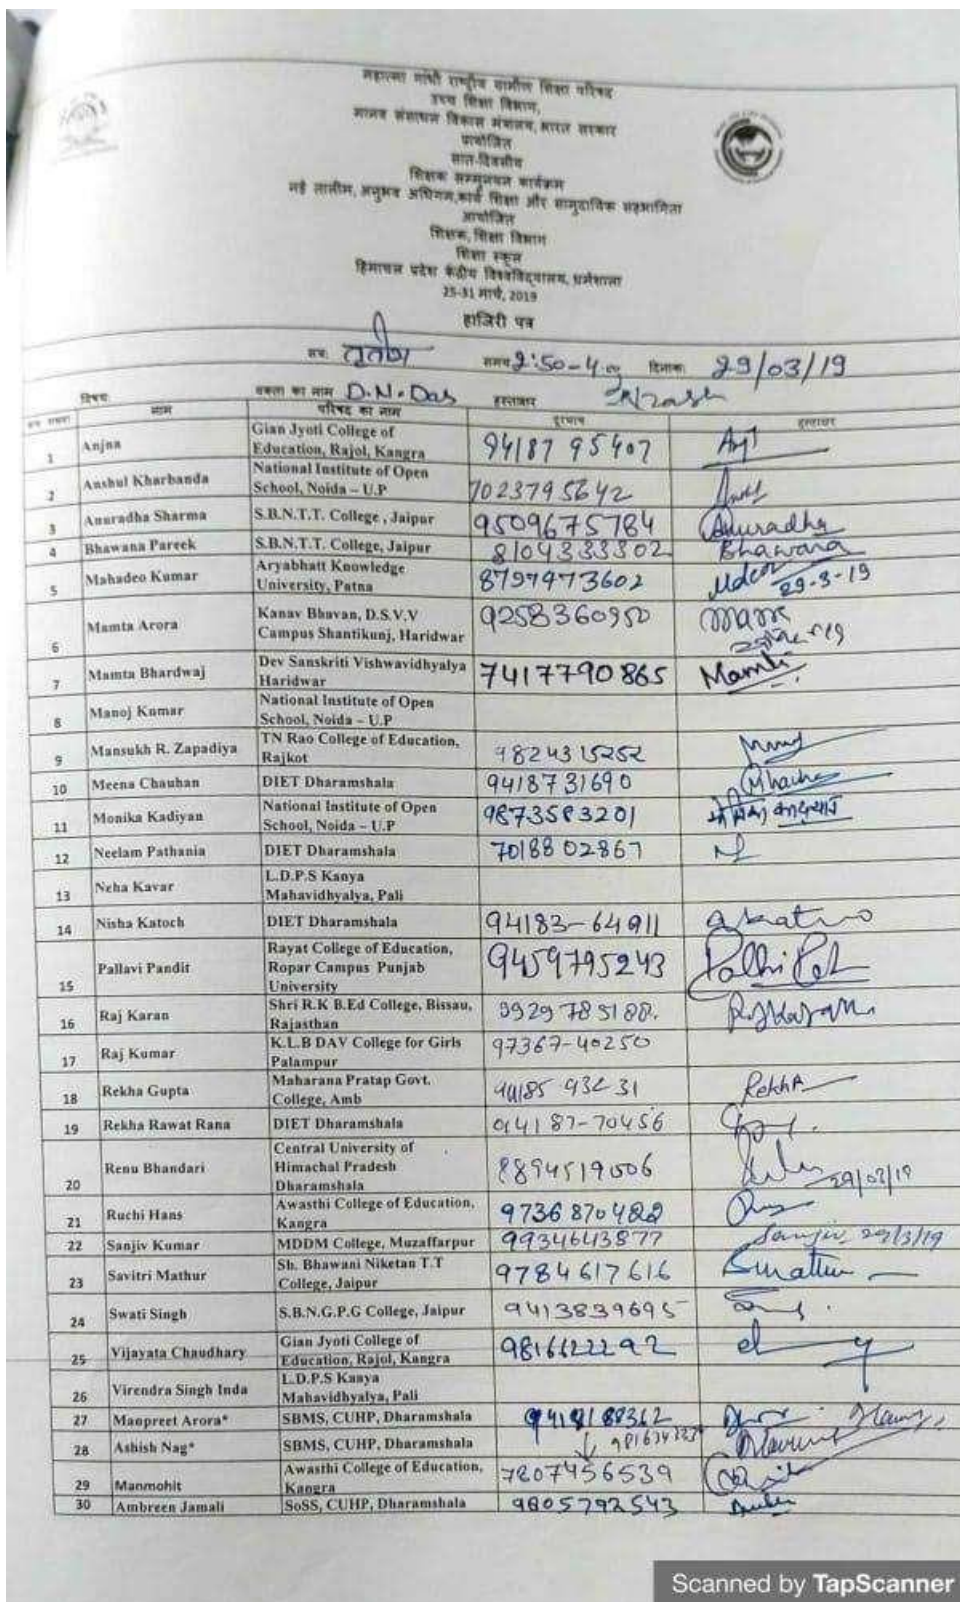 महात्मा गांधी राष्ट्रीय ग्रामीण शिक्षा परिषद
उच्च शिक्षा विभाग,
मानव संसाधन विकास मंत्रालय, भारत सरकार
प्रायोजित
सात-दिवसीय
शिक्षक सम्मुनयन कार्यक्रम
नई तालीम, अनुभव अधिगम,कार्य शिक्षा और सामुदायिक सहभागिता
आयोजित
शिक्षक, शिक्षा विभाग
शिक्षा स्कूल
हिमाचल प्रदेश केंद्रीय विश्वविद्यालय, धर्मशाला
25-31 मार्च, 2019
हाजिरी पत्र
सत्र: तृतीय समय 2:50-4:00 दिनांक: 29/03/19
विषय: वक्ता का नाम D.N.Das हस्ताक्षर
नाम परिषद का नाम दूरभाष हस्ताक्षर
1 Anjna Gian Jyoti College of Education, Rajol, Kangra 94187 95407
2 Anshul Kharbanda National Institute of Open School, Noida – U.P 7023795642
3 Anuradha Sharma S.B.N.T.T. College , Jaipur 9509675784 Anuradha
4 Bhawana Pareek S.B.N.T.T. College, Jaipur 8104333302 Bhawana
5 Mahadeo Kumar Aryabhatt Knowledge University, Patna 8797973602 29-3-19
6 Mamta Arora Kanav Bhavan, D.S.V.V Campus Shantikunj, Haridwar 9258360950
7 Mamta Bhardwaj Dev Sanskriti Vishwavidhyalya Haridwar 7417790865 Mamta
8 Manoj Kumar National Institute of Open School, Noida – U.P
9 Mansukh R. Zapadiya TN Rao College of Education, Rajkot 9824315252
10 Meena Chauhan DIET Dharamshala 9418731690
11 Monika Kadiyan National Institute of Open School, Noida – U.P 9873583201
12 Neelam Pathania DIET Dharamshala 7018802867
13 Neha Kavar L.D.P.S Kanya Mahavidhyalya, Pali
14 Nisha Katoch DIET Dharamshala 94183-64911
15 Pallavi Pandit Rayat College of Education, Ropar Campus Punjab University 9459795243
16 Raj Karan Shri R.K B.Ed College, Bissau, Rajasthan 9929785188. Rajkaran
17 Raj Kumar K.L.B DAV College for Girls Palampur 97367-40250
18 Rekha Gupta Maharana Pratap Govt. College, Amb 94185 93231 Rekha
19 Rekha Rawat Rana DIET Dharamshala 94187-70456
20 Renu Bhandari Central University of Himachal Pradesh Dharamshala 8894519006 29/03/19
21 Ruchi Hans Awasthi College of Education, Kangra 9736870422
22 Sanjiv Kumar MDDM College, Muzaffarpur 9934643877 Sanjiv 29/3/19
23 Savitri Mathur Sh. Bhawani Niketan T.T College, Jaipur 9784617616 Smathur
24 Swati Singh S.B.N.G.P.G College, Jaipur 9413839695
25 Vijayata Chaudhary Gian Jyoti College of Education, Rajol, Kangra 9816622292
26 Virendra Singh Inda L.D.P.S Kanya Mahavidhyalya, Pali
27 Manpreet Arora* SBMS, CUHP, Dharamshala
28 Ashish Nag* SBMS, CUHP, Dharamshala
29 Manmohit Awasthi College of Education, Kangra 7807456539
30 Ambreen Jamali SoSS, CUHP, Dharamshala 9805792543
Scanned by TapScanner